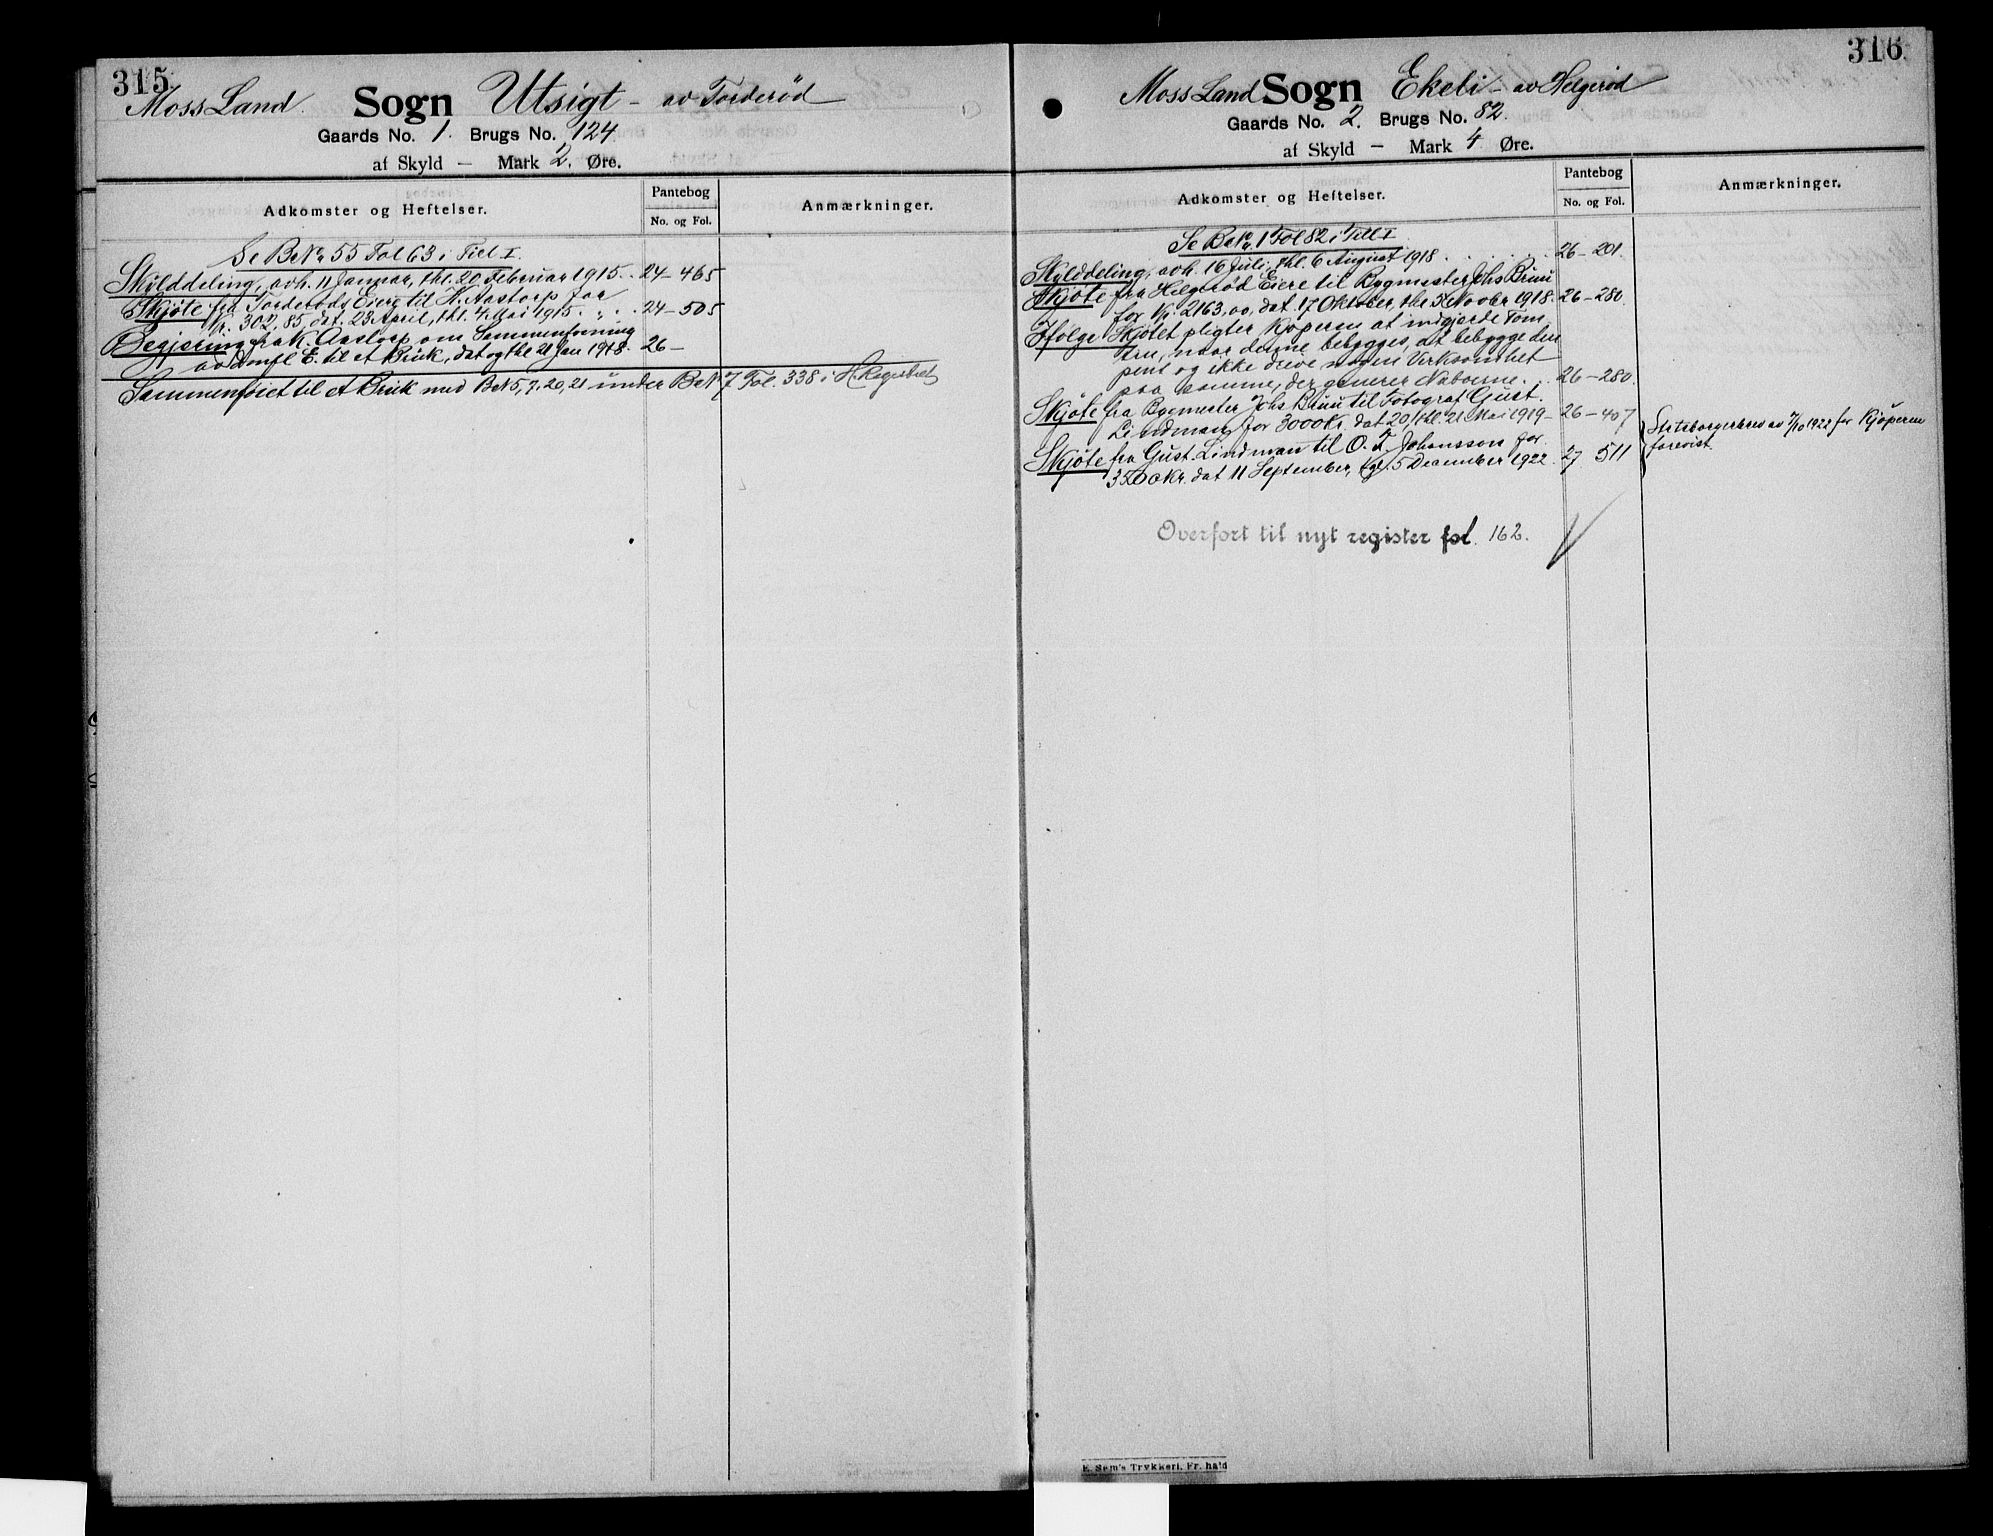 315
Moss Land. Sogn Utsigt - av Torderød
Gaards No. 1. Brugs No. 124.
af Skyld — Mark 2. Øre.
Adkomster og Heftelser.
Pantebog
No. og Fol.
Anmærkninger.
Se BrNr 55 Fol 63 i Tiel I.
Skylddeling, avh. 11 Januar, thl. 20 Februar 1915. . 24 - 465
Skjøte fra Torderøds Eiere til K. Aastorp for
Kr. 302,85, dat. 23 April, thl. 4 Mai 1915. . . . 24 - 505
Begjæring fra K. Aastorp om Sammenføining
av dmfl E. til et Bruk, dat og thl 21 Jan 1918. 26 -
Sammenføiet til et Bruk med BrNr 5, 7, 20, 21 under BrNr 7 Fol. 338 i H.Registret
316.
Moss Land Sogn Ekeli - av Helgerød
Gaards No. 2. Brugs No. 82.
af Skyld — Mark 4 Øre.
Adkomster og Heftelser.
Pantebog
No. og Fol.
Anmærkninger.
Se BrNr. 1 Fol 82 i Till I.
Skylddeling, avh. 16 Juli, thl. 6 August 1918 . . . . . . 26 - 201.
Skjøte fra Helgerød Eiere til Bygmester Johs Bruu
for Kr. 2163,00, dat. 17 Oktober, thl 5 Novbr 1918. 26 - 280.
Ifølge Skjøtet pligter Kjøperen at indgjærde Tom
ten, naar denne bebygges, at bebygge den
pent og ikke drive nogen Virksomhet
paa samme, der generer Naboerne. . . 26 - 280.
Skjøte fra Bygmester Johs Bruu til Fotograf Gust.
Lindman for 3000 Kr. dat 20, thl. 21 Mai 1919 - 26 - 407
Skjøte fra Gust. Lindman til O. F. Johansson for
3500 kr. dat 11 September, tgl 5 December 1922. 27 511
Statsborgerbrev av 7/10 1922 for Kjøperen
forevist.
Overført til nyt register fol. 162.
E. Sem's Trykkeri, Fr.hald